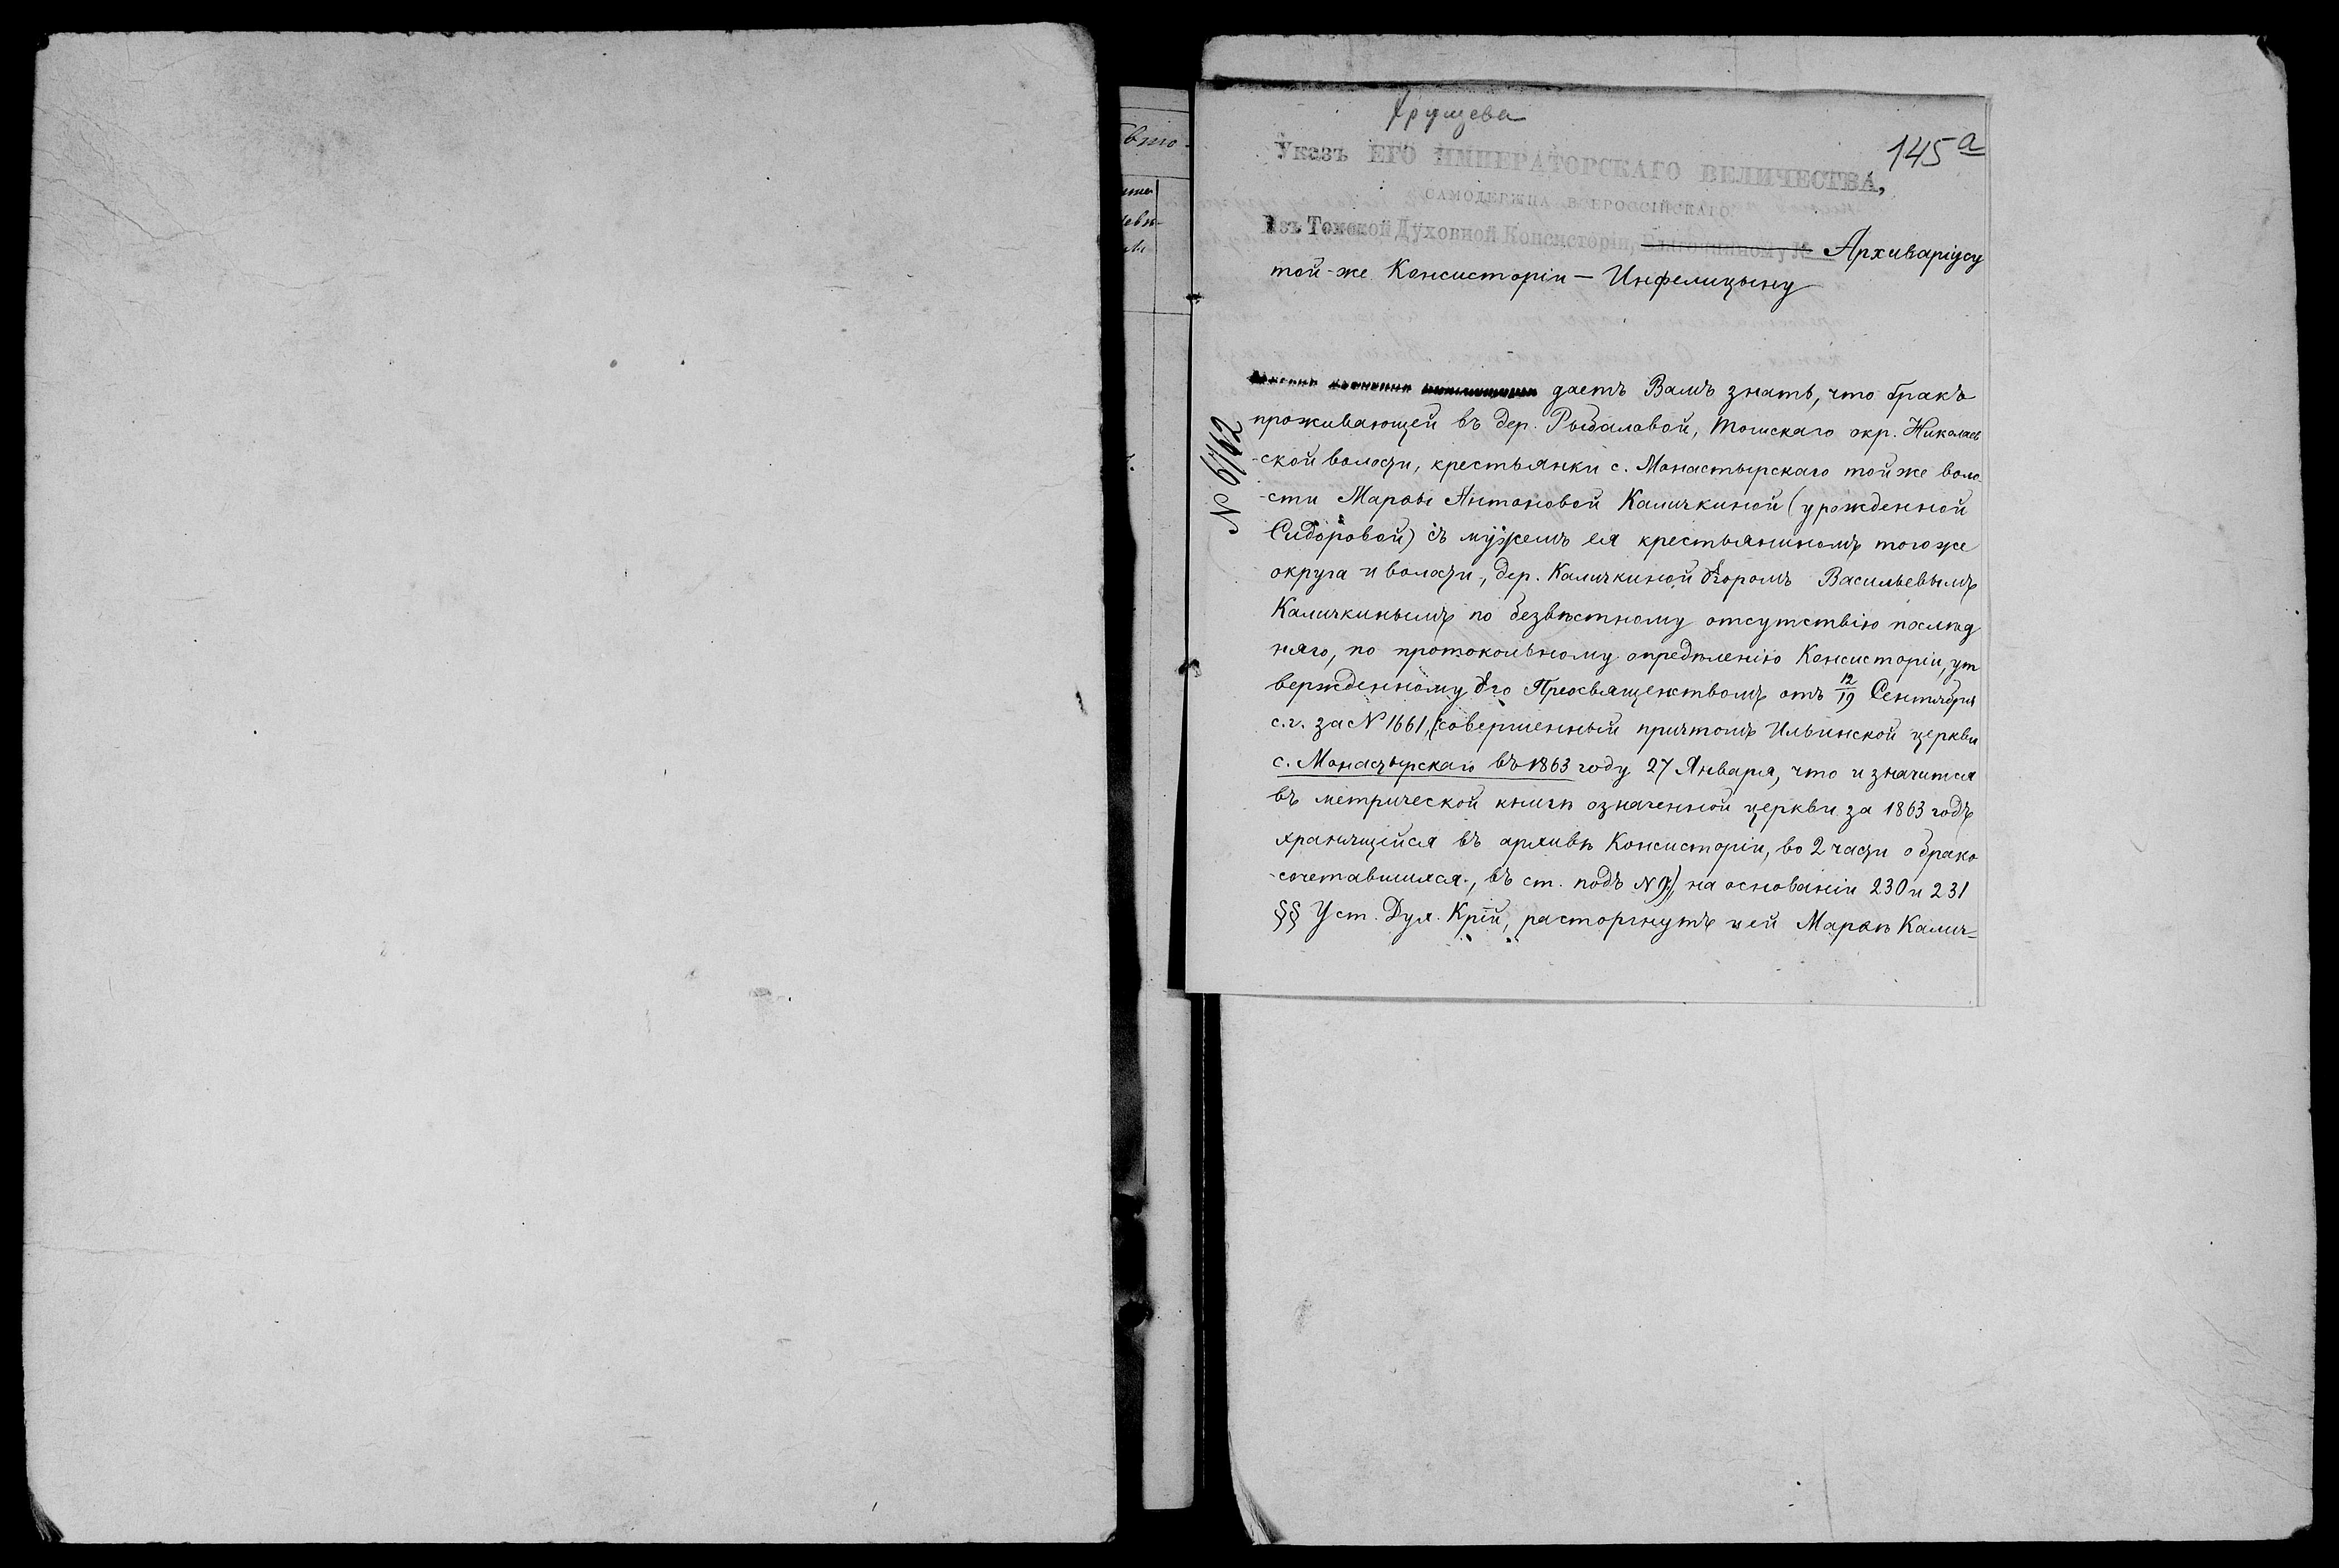 Хрущева
145 а
Указъ ЕГО ИМПЕРАТОРСКАГО ВЕЛИЧЕСТВА,
САМОДЕРЖЦА ВСЕРОССІЙСКАГО
Изъ Томской Духовной Консисторіи, Благочинному № Архиваріусу
той-же Консисторіи — Инфелицыну
№ 6762
даетъ Вамъ знать, что бракъ
проживающей въ дер. Рыбаловой, Томскаго окр. Николаев
-ской волости, крестьянки с. Монастырскаго той же воло
-сти Марѳы Антоновой Каличкиной (урожденной
Сидоровой) съ мужемъ ея крестьяниномъ того же
округа и волости, дер. Каличкиной Егоромъ Васильевымъ
Каличкинымъ по безвѣстному отсутствію послѣд
няго, по протокольному опредѣленію Консисторіи, ут
вержденному Его Преосвященствомъ отъ 12/19 Сентября
с.г. за № 1661, (совершенный причтомъ Ильинской церкви
с. Монастырскаго въ 1863 году 27 Января, что и значится
въ метрической книгѣ означенной церкви за 1863 годъ
хранящейся въ архивѣ Консисторіи, во 2 части о брако
-сочетавшихся, въ ст. подъ № 9), на основаніи 230 и 231
§§ Уст. Дух. Крій, расторгнутъ и ей Марѳѣ Калич-